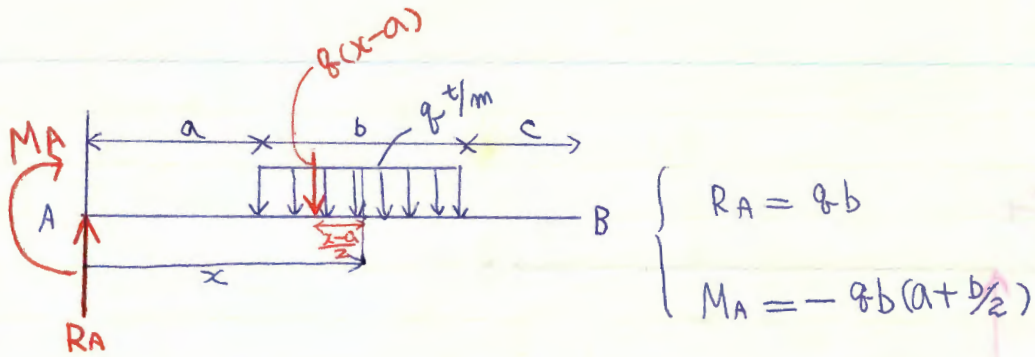 q(x-a)
q t/m
a b c
MA
A
B
x-a/2
x
RA
RA = qb
MA = - qb(a+b/2)